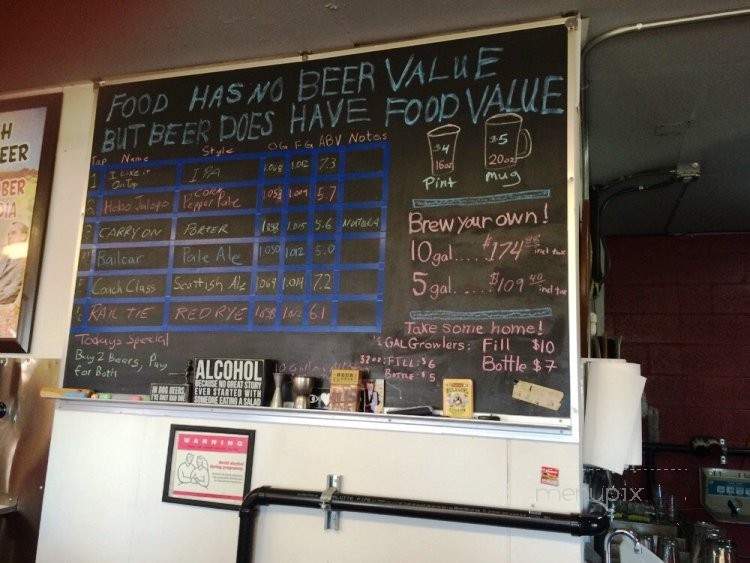 FOOD HAS NO BEER VALUE
BUT BEER DOES HAVE FOOD VALUE
Tap Name Style OG FG ABV Notes
1 I Like it On Top IPA 1.068 1.012 7.3
2 Hobo Jalapo Corn Pepper Pale 1.014 5.7
3 CARRY ON PORTER 1.015 5.6
4 Railcar Pale Ale 1.050 1.012 5.0
5 Coach Class Scottish Ale 1.069 1.014 7.2
6 RAIL TIE RED RYE 6.1
Todays Special
Buy 2 Beers, Pay
for Both
$4
16oz
Pint
$5
20oz
Mug
Brew your own!
10 gal..... $174 incl tax
5 gal...... $109 40 incl tax
Take some home!
½ GAL Growlers: Fill $10
Bottle $7
FILL: $6
BOTTLE: $5
ALCOHOL
BECAUSE NO GREAT STORY
EVER STARTED WITH
SOMEONE EATING A SALAD
IN DOG BEERS,
I'VE ONLY HAD ONE
WARNING
H
EER
BER
DIA
menupix